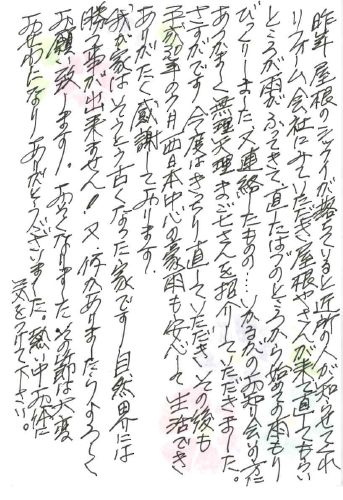 昨年、屋根のシックイが落ちていると近所の人が知らせてくれ
リフォーム会社にみていただき屋根やさんが来て直してもらい
ところが雨がふってきて、直したはづのところから始めての雨もり
びっくりしました。又連絡したものの…いかがわの知り会の方に
あつかましく無理矢理まごころさんを紹介していただきました。
さすがです。今度はきっちり直していただき、その後も
平成30年の7月、西日本中心の豪雨も安心して生活でき
ありがたく感謝しております。
我が家はそうとう古くなった家です。自然界には
勝つ事が出来ません! 又、何かありましたらよろしく
お願い致します。おそくなりましたがその節は大変
お世わになりありがとうございました。熱い中お体に
気をつけて下さい。